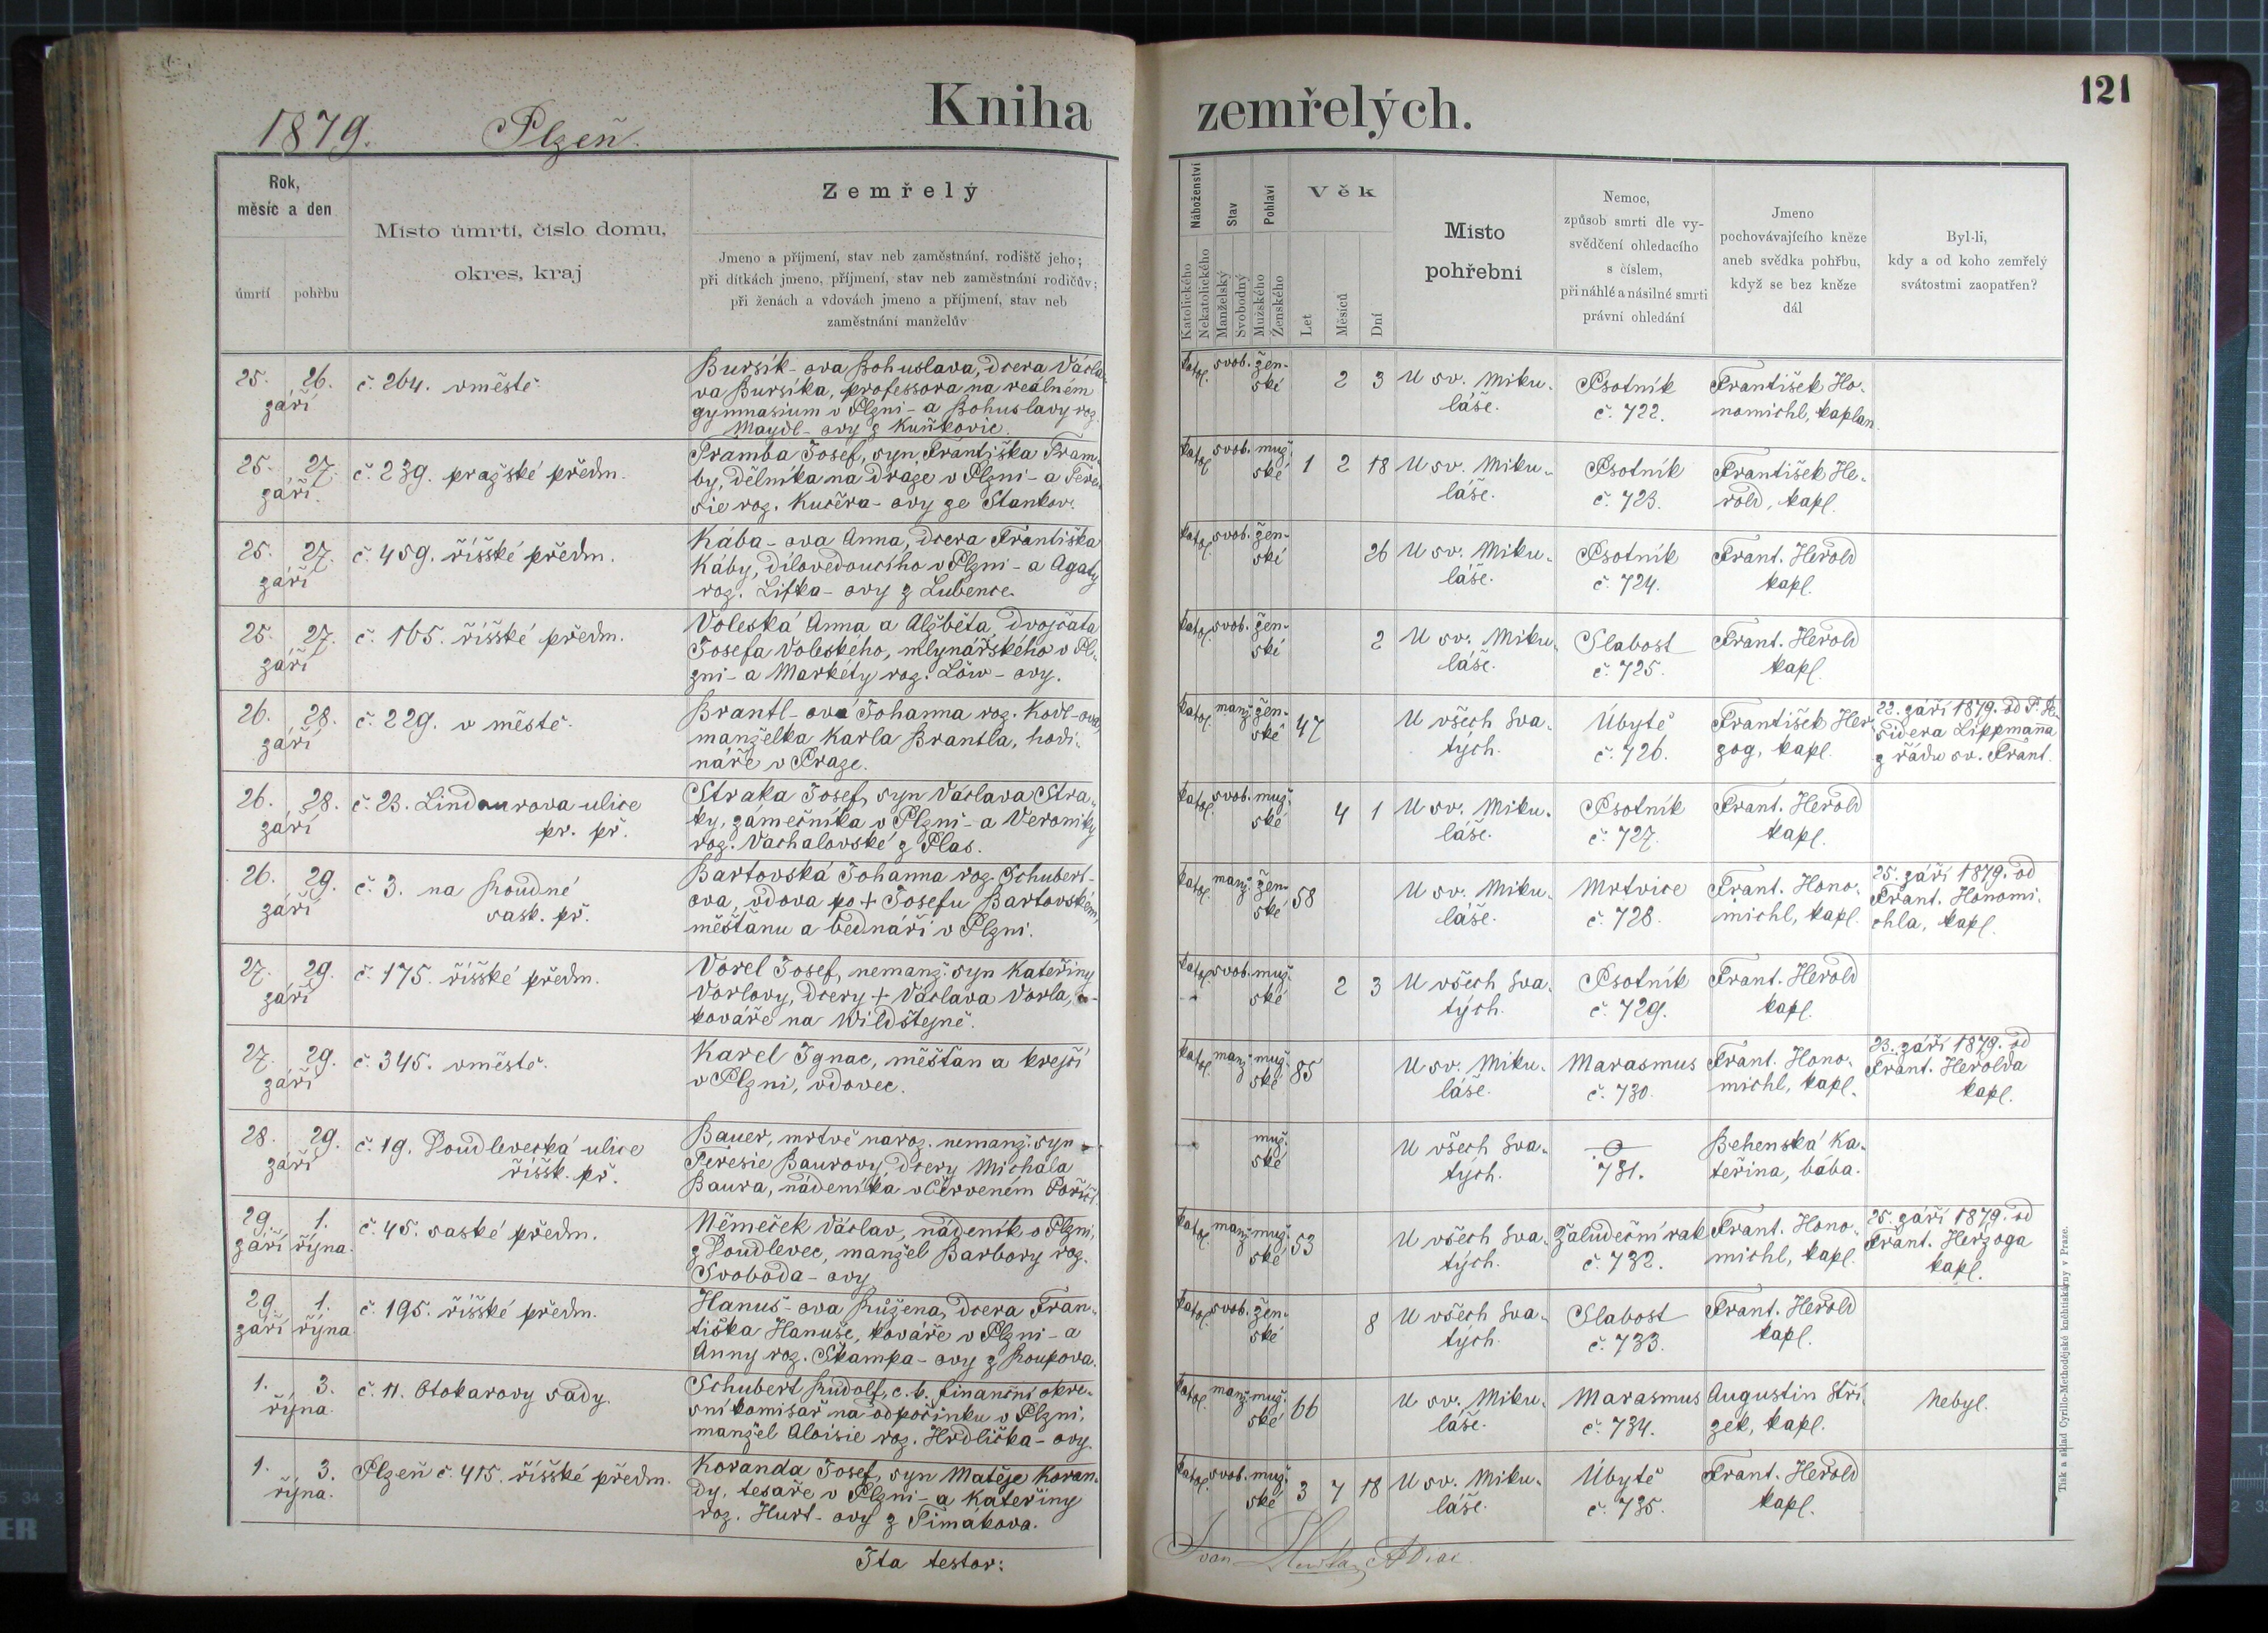 121
Kniha zemřelých.
1879. Plzeň.
Rok, měsíc a den
úmrtí
pohřbu
Místo úmrtí, číslo domu, okres, kraj
Zemřelý
Jmeno a příjmení, stav neb zaměstnání, rodiště jeho;
při dítkách jmeno, příjmení, stav neb zaměstnání rodičův;
při ženách a vdovách jmeno a příjmení, stav neb
zaměstnání manželův
Náboženství
Katolického
Nekatolického
Stav
Manželský
Svobodný
Pohlaví
Mužského
Ženského
Věk
Let
Měsíců
Dní
Místo
pohřební
Nemoc,
způsob smrti dle vy-
svědčení ohledacího
s číslem,
při náhlé a násilné smrti
právní ohledání
Jmeno
pochovávajícího kněze
aneb svědka pohřbu,
když se bez kněze
dál
Byl-li,
kdy a od koho zemřelý
svátostmi zaopatřen?
25. 26. září
č. 264. v městě.
Bursík-ova Bohuslava, dcera Václa-
va Bursíka, professora na reálném
gymnasium v Plzni - a Bohuslavy roz.
Maydl-ovy z Kuňkovic.
katol. svob. žen-
ské
2 3
U sv. Miku-
láše.
Psotník
č. 722.
František Ho-
nomichl, kaplan.
25. 27. září.
č. 239. pražské předm.
Tramba Josef, syn Františka Tram-
by, dělníka na dráze v Plzni - a Tere-
sie roz. Kučera-ovy ze Stankov.
katol. svob. muž-
ské
1 2 18
U sv. Miku-
láše.
Psotník
č. 723.
František He-
rold, kapl.
25. 27. září
č. 459. říšské předm.
Kába-ova Anna, dcera Františka
Káby, dílovedoucího v Plzni - a Agaty
roz. Lifka-ovy z Lubence.
katol. svob. žen-
ské
26
U sv. Miku-
láše.
Psotník
č. 724.
Frant. Herold
kapl.
25. 27. září
č. 165. říšské předm.
Voleská Anna a Alžběta, dvojčata
Josefa Voleského, mlynářského v Pl-
zni - a Markéty roz. Löw-ovy.
katol. svob. žen-
ské
2
U sv. Miku-
láše.
Slabost
č. 725.
Frant. Herold
kapl.
26. 28. září
č. 229. v městě.
Brantl-ová Johanna roz. Kodl-ova,
manželka Karla Brantla, hodi-
náře v Praze.
katol. manž. žen-
ské
47
U všech Sva-
tých.
Úbytě
č. 726.
František Her-
zog, kapl.
22. září 1879. od P.
sidera Lippmanna
z řádu sv. Frant.
26. 28. září
č. 23. Lindaurova ulice
pr. př.
Straka Josef, syn Václava Stra-
ky, zámečníka v Plzni - a Veroniky
roz. Vachalovské z Plas.
katol. svob. muž-
ské
4 1
U sv. Miku-
láše.
Psotník
č. 727.
Frant. Herold
kapl.
26. 29. září
č. 3. na Roudné
sask. př.
Bartovská Johanna roz. Schubert-
ova, vdova po + Josefu Bartovském,
měšťanu a bednáři v Plzni.
katol. manž. žen-
ské
58
U sv. Miku-
láše.
Mrtvice
č. 728.
Frant. Hono-
michl, kapl.
25. září 1879. od
Frant. Honomi-
chla, kapl.
27. 29. září
č. 175. říšské předm.
Vorel Josef, nemanž. syn Kateřiny
Vorlovy, dcery + Václava Vorla,
kováře na Wildštejně.
katol. svob. muž-
ské
2 3
U všech Sva-
tých.
Psotník
č. 729.
Frant. Herold
kapl.
27. 29. září
č. 345. v městě.
Karel Ignac, měšťan a krejčí
v Plzni, vdovec.
katol. manž. muž-
ské
85
U sv. Miku-
láše.
Marasmus
č. 730.
Frant. Hono-
michl, kapl.
23. září 1879. od
Frant. Herolda
kapl.
28. 29. září
č. 19. Doudlevecká ulice
říšsk. př.
Bauer, mrtvě naroz. nemanž. syn
Teresie Baurovy, dcery Michala
Baura, nádeníka v Červeném Poříčí.
muž-
ské
U všech Sva-
tých.
731.
Behenská Ka-
teřina, bába.
29. září 1. října.
č. 45. saské předm.
Němeček Václav, nádeník v Plzni,
z Doudlevec, manžel Barbory roz.
Svoboda-ovy.
katol. manž. muž-
ské
53
U všech Sva-
tých.
Žaludeční rak
č. 732.
Frant. Hono-
michl, kapl.
25. září 1879. od
Frant. Herzoga
kapl.
29. září 1. října.
č. 195. říšské předm.
Hanuš-ova Růžena, dcera Fran-
tiška Hanuše, kováře v Plzni - a
Anny roz. Škampa-ovy z Roupova.
katol. svob. žen-
ské
8
U všech Sva-
tých.
Slabost
č. 733.
Frant. Herold
kapl.
1. 3. října.
č. 11. Otokarovy sady.
Schubert Rudolf, c. k. finanční okre-
sní komisař na odpočinku v Plzni,
manžel Aloisie roz. Hrdlička-ovy.
katol. manž. muž-
ské
66
U sv. Miku-
láše.
Marasmus
č. 734.
Augustin Stří-
zek, kapl.
Nebyl.
1. 3. října.
Plzeň č. 415. říšské předm.
Koranda Josef, syn Matěje Koran-
dy, tesaře v Plzni - a Kateřiny
roz. Hurt-ovy z Timákova.
katol. svob. muž-
ské
3 7 18
U sv. Miku-
láše.
Úbytě
č. 735.
Frant. Herold
kapl.
Ita testor:
Tisk a sklad Cyrillo-Methodějské knihtiskárny v Praze.